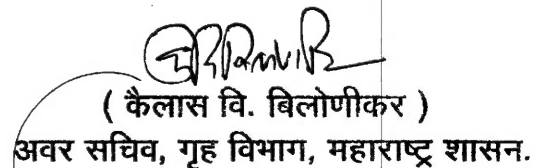 ( कैलास वि. बिलोणीकर )
अवर सचिव, गृह विभाग, महाराष्ट्र शासन.